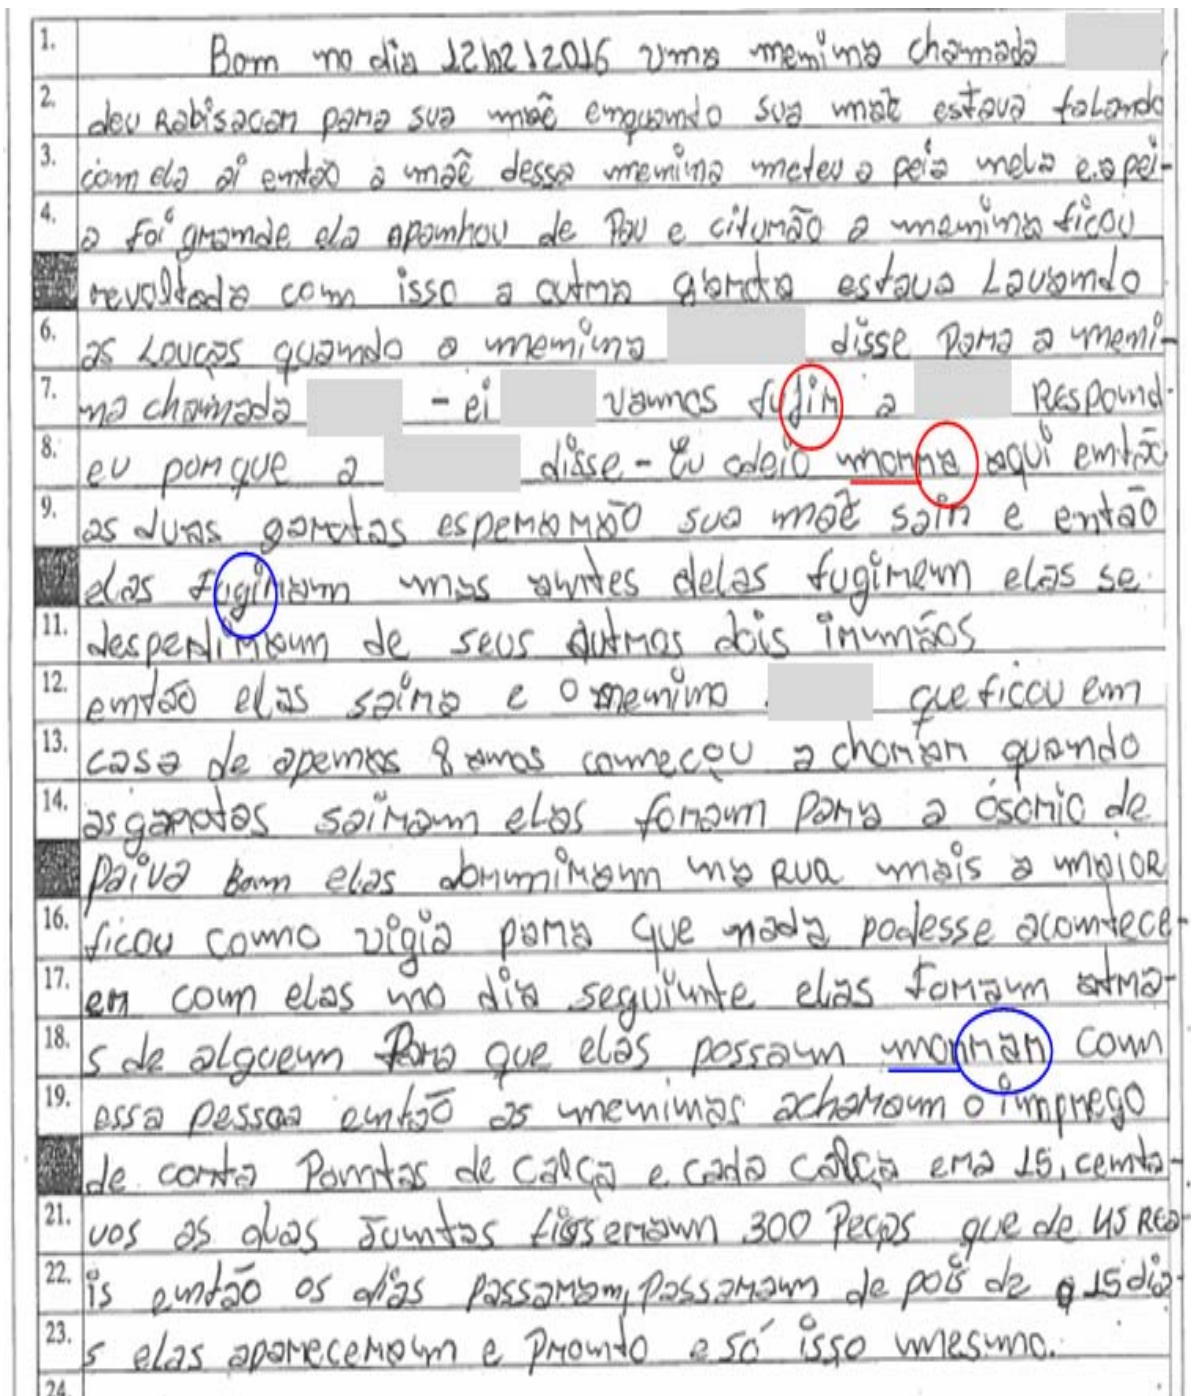 1. Bom no dia 12/02/2016 uma menina chamada
2. deu Rabisacan para sua mãe enquando sua mãe estava falando
3. com ela ai então a mãe dessa menina meteu a peia nela e.a pei-
4. a foi grande ela apanhou de Pau e citurão a menina ficou
revoltada com isso a outra garota estava Lavando
6. as Louças quando a menina disse Para a meni-
7. na chamada - ei vamos fujir a RESPond-
8. eu porque a disse - Eu odeio morra aqui então
9. as duas garotas esperarão sua mãe sair e então
elas fugiram mas antes delas fugirem elas se
11. despediraum de seus outros dois irumãos
12. então elas saira e o menino que ficou em
13. casa de apenas 8 anos começou a chorar quando
14. as garotas sairam elas foram Para a ósorio de
Paiva Bom elas dorumiram na RUA mais a maior
16. ficou como vigia para que nada podesse acontece-
17. er com elas no dia seguinte elas Foram atra-
18. s de alguem Para que elas possam morrar com
19. essa pessoa então as meninas acharam o imprego
de conta Pontas de calça e cada calça era 15, centa-
21. vos as duas Juntas fisseram 300 Peças que de 45 REA-
22. is então os dias Passaram, Passaram de pois de 15 dia-
23. s elas apareceram e Pronto e só isso mesmo.
24.